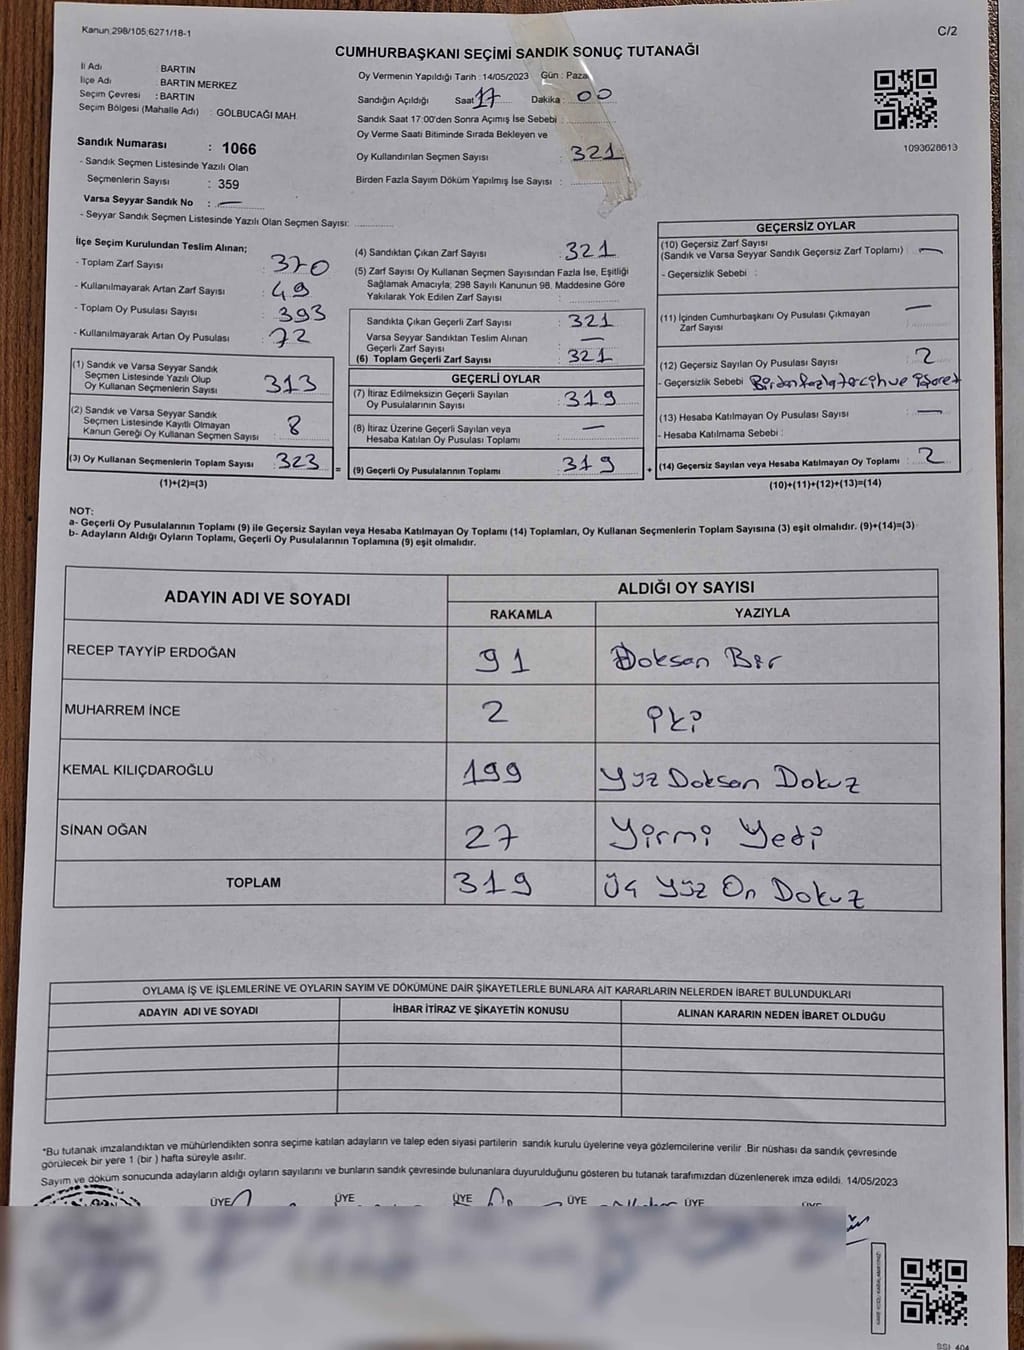 Kanun 298/105,6271/18-1
C/2
CUMHURBAŞKANI SEÇİMİ SANDIK SONUÇ TUTANAĞI
İl Adı : BARTIN
İlçe Adı : BARTIN MERKEZ
Seçim Çevresi : BARTIN
Seçim Bölgesi (Mahalle Adı) : GÖLBUCAĞI MAH.
Sandık Numarası : 1066
- Sandık Seçmen Listesinde Yazılı Olan
Seçmenlerin Sayısı : 359
Varsa Seyyar Sandık No : —
- Seyyar Sandık Seçmen Listesinde Yazılı Olan Seçmen Sayısı:
Oy Vermenin Yapıldığı Tarih : 14/05/2023 Gün : Paza
Sandığın Açıldığı Saat 17 Dakika : 00
Sandık Saat 17:00'den Sonra Açımış İse Sebebi :
Oy Verme Saati Bitiminde Sırada Bekleyen ve
Oy Kullandırılan Seçmen Sayısı : 321
Birden Fazla Sayım Döküm Yapılmış İse Sayısı :
1093628613
İlçe Seçim Kurulundan Teslim Alınan;
- Toplam Zarf Sayısı : 370
- Kullanılmayarak Artan Zarf Sayısı : 49
- Toplam Oy Pusulası Sayısı : 393
- Kullanılmayarak Artan Oy Pusulası : 72
(1) Sandık ve Varsa Seyyar Sandık
Seçmen Listesinde Yazılı Olup
Oy Kullanan Seçmenlerin Sayısı : 313
(2) Sandık ve Varsa Seyyar Sandık
Seçmen Listesinde Kayıtlı Olmayan
Kanun Gereği Oy Kullanan Seçmen Sayısı : 8
(3) Oy Kullanan Seçmenlerin Toplam Sayısı : 323
(1)+(2)=(3)
(4) Sandıktan Çıkan Zarf Sayısı : 321
(5) Zarf Sayısı Oy Kullanan Seçmen Sayısından Fazla İse, Eşitliği
Sağlamak Amacıyla; 298 Sayılı Kanunun 98. Maddesine Göre
Yakılarak Yok Edilen Zarf Sayısı :
Sandıkta Çıkan Geçerli Zarf Sayısı : 321
Varsa Seyyar Sandıktan Teslim Alınan
Geçerli Zarf Sayısı : —
(6) Toplam Geçerli Zarf Sayısı : 321
GEÇERLİ OYLAR
(7) İtiraz Edilmeksizin Geçerli Sayılan
Oy Pusulalarının Sayısı : 319
(8) İtiraz Üzerine Geçerli Sayılan veya
Hesaba Katılan Oy Pusulası Toplamı : —
= (9) Geçerli Oy Pusulalarının Toplamı : 319 +
GEÇERSİZ OYLAR
(10) Geçersiz Zarf Sayısı
(Sandık ve Varsa Seyyar Sandık Geçersiz Zarf Toplamı) : —
- Geçersizlik Sebebi :
(11) İçinden Cumhurbaşkanı Oy Pusulası Çıkmayan
Zarf Sayısı : —
(12) Geçersiz Sayılan Oy Pusulası Sayısı : 2
- Geçersizlik Sebebi : Birden fazla tercih ve işaret
(13) Hesaba Katılmayan Oy Pusulası Sayısı : —
- Hesaba Katılmama Sebebi :
(14) Geçersiz Sayılan veya Hesaba Katılmayan Oy Toplamı : 2
(10)+(11)+(12)+(13)=(14)
NOT:
a- Geçerli Oy Pusulalarının Toplamı (9) ile Geçersiz Sayılan veya Hesaba Katılmayan Oy Toplamı (14) Toplamları, Oy Kullanan Seçmenlerin Toplam Sayısına (3) eşit olmalıdır. (9)+(14)=(3)
b- Adayların Aldığı Oyların Toplamı, Geçerli Oy Pusulalarının Toplamına (9) eşit olmalıdır.
ADAYIN ADI VE SOYADI ALDIĞI OY SAYISI
RAKAMLA YAZIYLA
RECEP TAYYİP ERDOĞAN 91 Doksan Bir
MUHARREM İNCE 2 İki
KEMAL KILIÇDAROĞLU 199 Yüz Doksan Dokuz
SİNAN OĞAN 27 Yirmi Yedi
TOPLAM 319 Üç Yüz On Dokuz
OYLAMA İŞ VE İŞLEMLERİNE VE OYLARIN SAYIM VE DÖKÜMÜNE DAİR ŞİKAYETLERLE BUNLARA AİT KARARLARIN NELERDEN İBARET BULUNDUKLARI
ADAYIN ADI VE SOYADI İHBAR İTİRAZ VE ŞİKAYETİN KONUSU ALINAN KARARIN NEDEN İBARET OLDUĞU
*Bu tutanak imzalandıktan ve mühürlendikten sonra seçime katılan adayların ve talep eden siyasi partilerin sandık kurulu üyelerine veya gözlemcilerine verilir. Bir nüshası da sandık çevresinde
görülecek bir yere 1 (bir ) hafta süreyle asılır.
Sayım ve döküm sonucunda adayların aldığı oyların sayılarını ve bunların sandık çevresinde bulunanlara duyurulduğunu gösteren bu tutanak tarafımızdan düzenlenerek imza edildi. 14/05/2023
ÜYE ÜYE ÜYE ÜYE ÜYE ÜYE